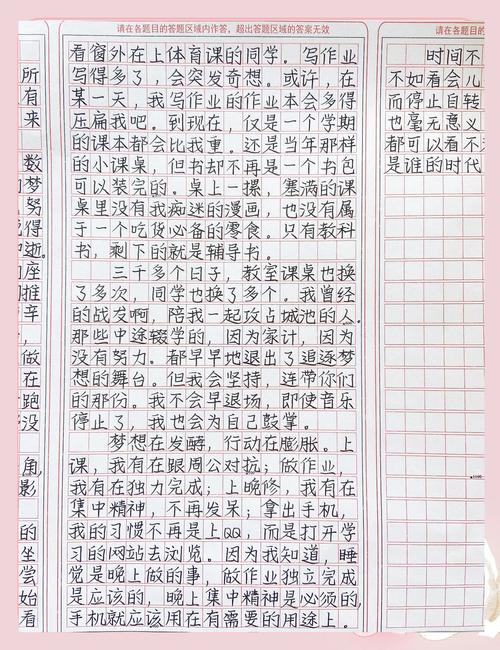 请在各题目的答题区域内作答，超出答题区域的答案无效
看窗外在上体育课的同学。写作业
写得多了，会突发奇想。或许，在
某一天，我写作业的作业本会多得
压扁我吧。到现在，仅是一个学期
的课本都会比我重。还是当年那样
的小课桌，但书却不再是一个书包
可以装完的。桌上一摞，塞满的课
桌里没有我痴迷的漫画，也没有属
于一个吃货必备的零食。只有教科
书，剩下的就是辅导书。
三千多个日子，教室课桌也换
了多次，同学也换了多个。我曾经
的战友啊，陪我一起攻占城池的人。
那些中途辍学的，因为家计，因为
没有努力。都早早地退出了追逐梦
想的舞台。但我会坚持，连带你们
的那份。我不会早退场，即使音乐
停止了，我也会为自己鼓掌。
梦想在发酵，行动在膨胀。上
课，我有在跟周公对抗；做作业，
我有在独力完成；上晚修，我有在
集中精神，不再发呆；拿出手机，
我的习惯不再是上QQ，而是打开学
习的网站去浏览。因为我知道，睡
觉是晚上做的事，做作业独立完成
是应该的，晚上集中精神是必须的，
手机就应该用在有需要的用途上。
请在各题目的
时间不
不如看会儿
而停止自转
也毫无意义
都可以看不
是谁的时代
所
有
来
数
梦
努
得
逝。
座
推
辛
，
做
在
跑
没
角
影
的
坐
尝
始
看